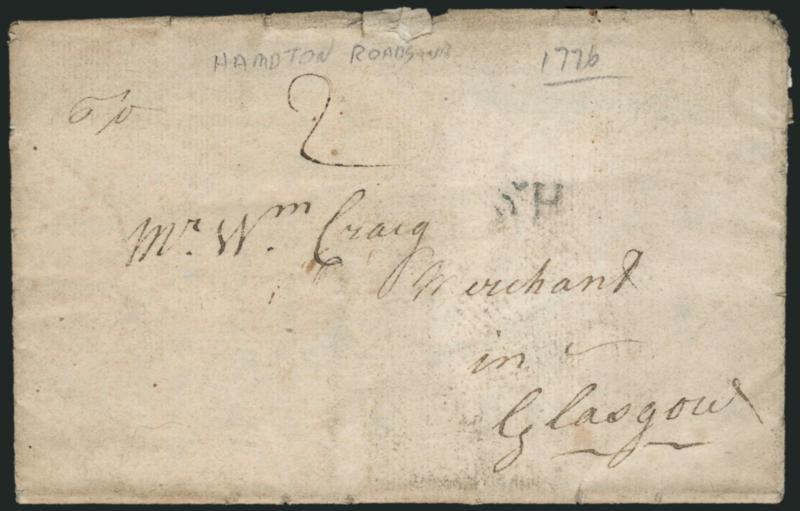 HAMPTON ROADS 1776
To
2
Mr. Wm. Craig
Merchant
in
Glasgow